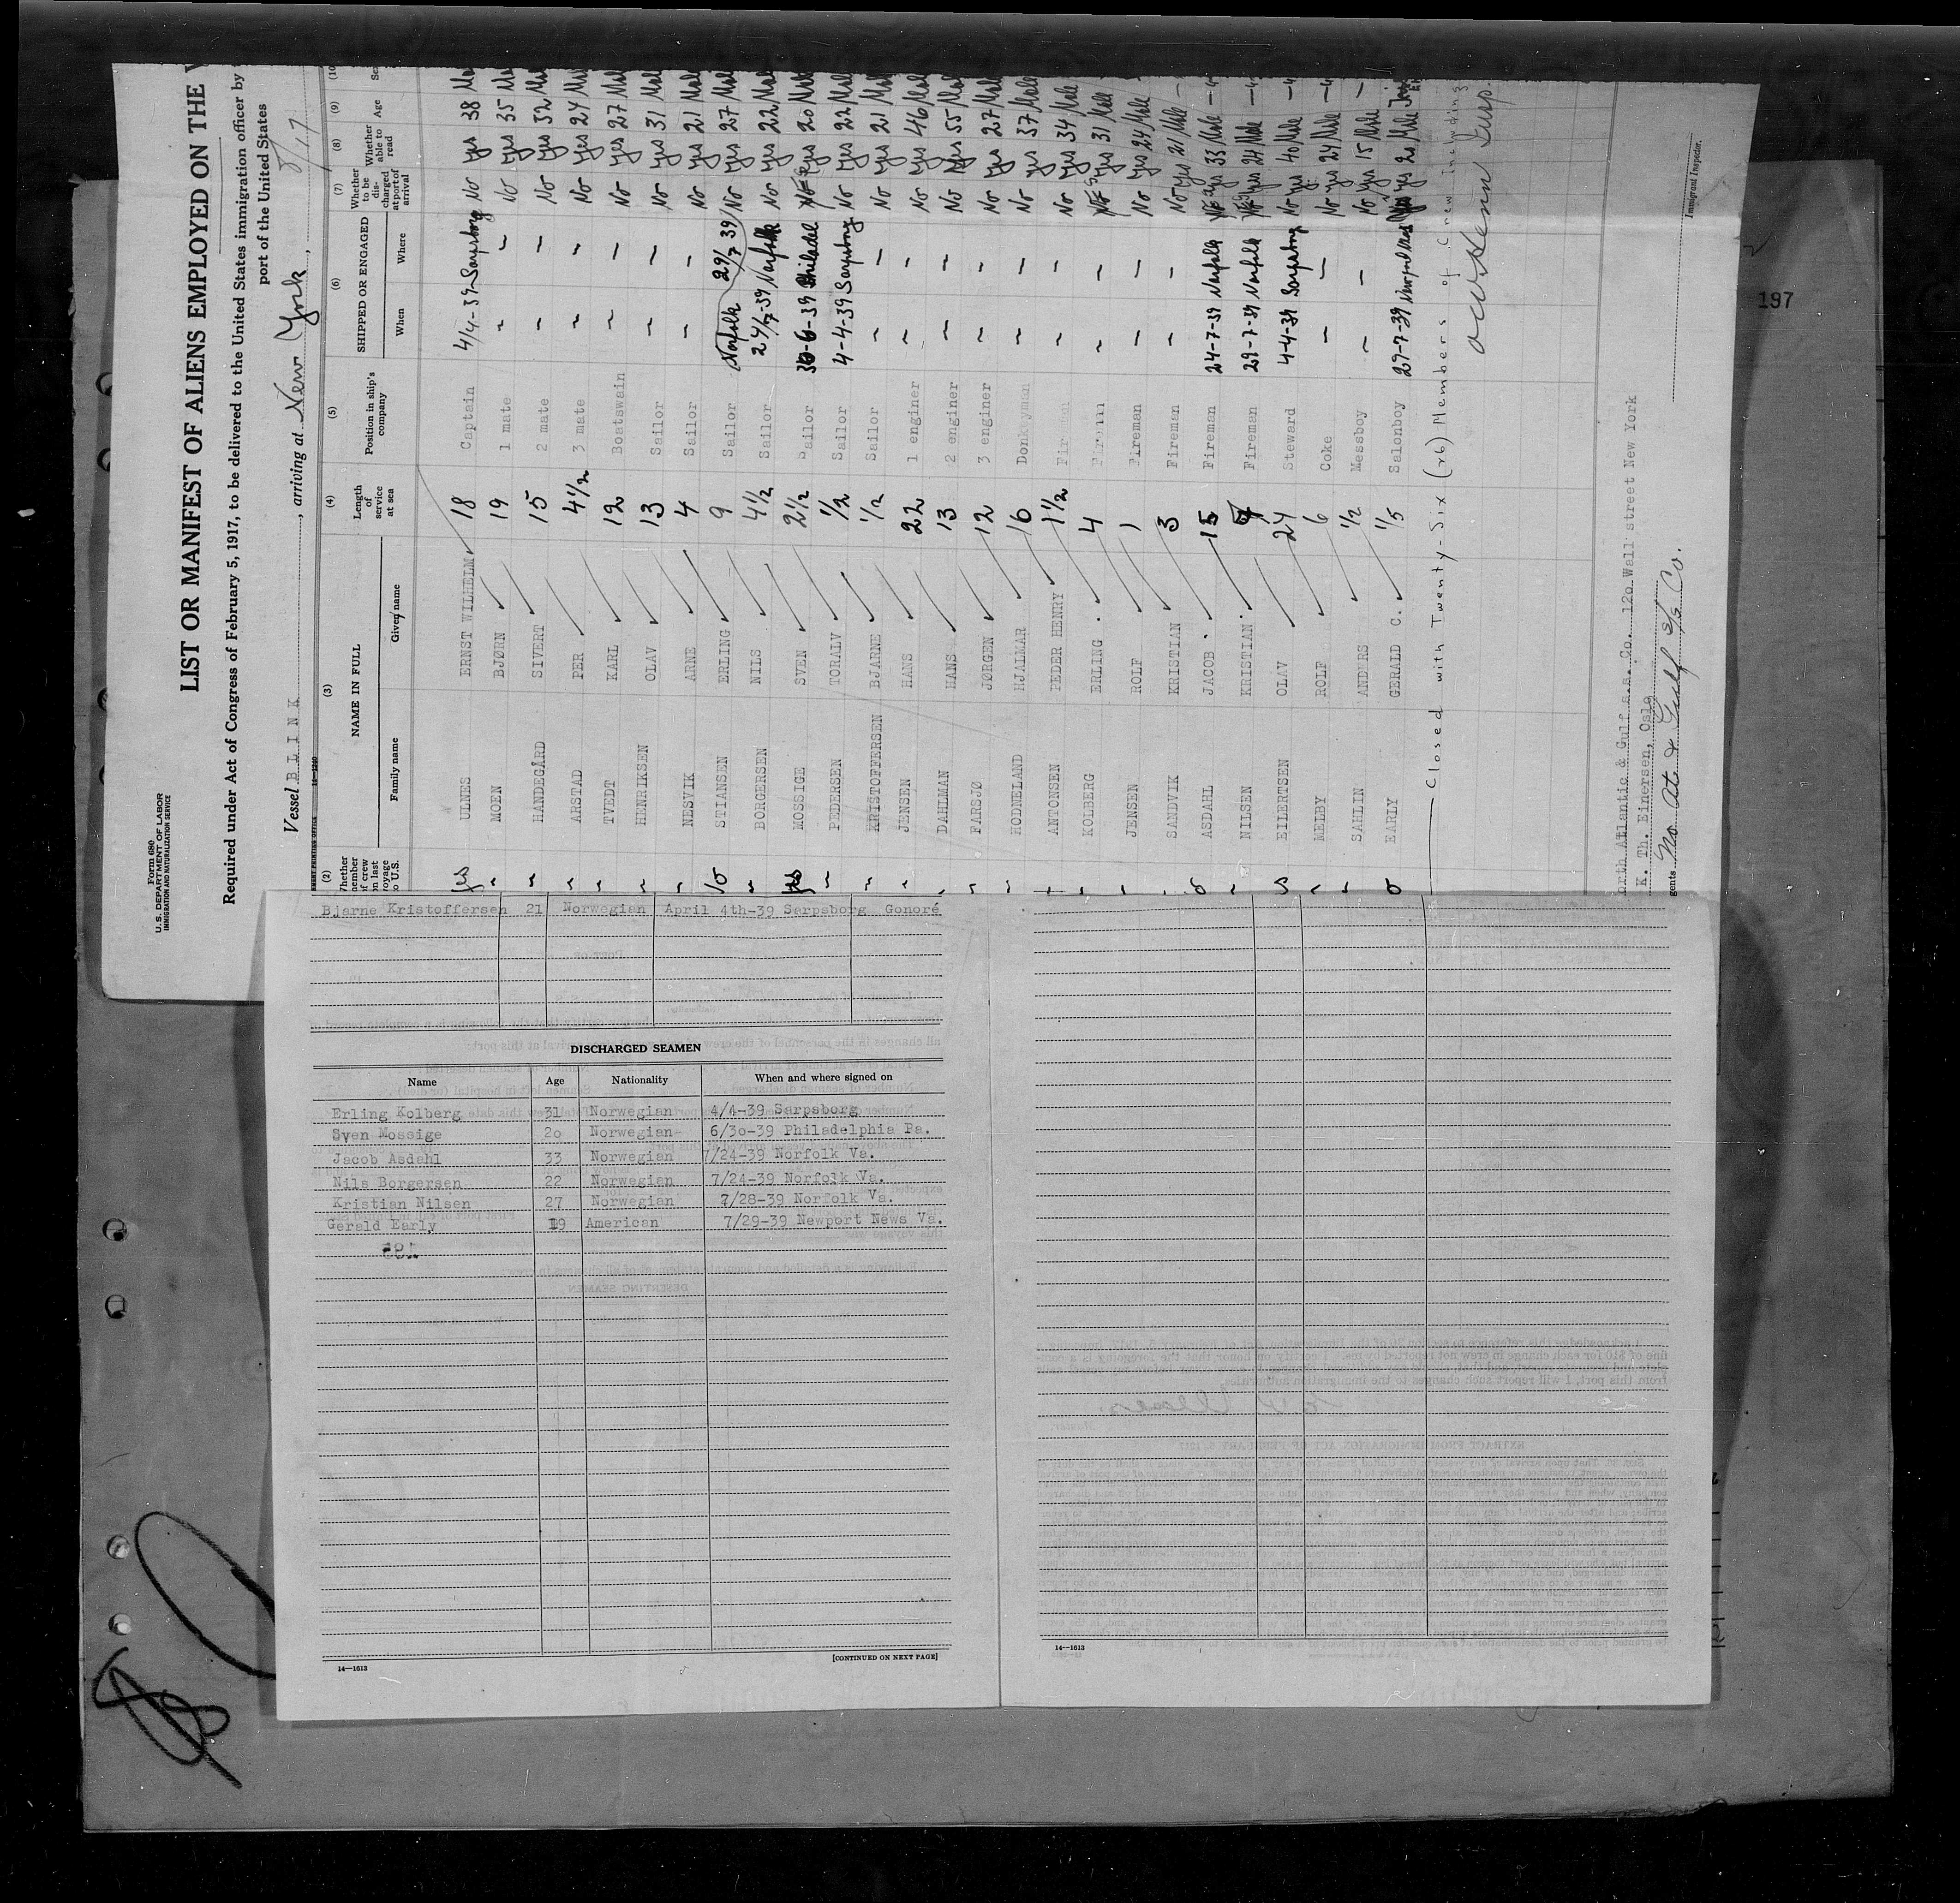 Form 680
U. S. DEPARTMENT OF LABOR
IMMIGRATION AND NATURALIZATION SERVICE
LIST OR MANIFEST OF ALIENS EMPLOYED ON THE
Required under Act of Congress of February 5, 1917, to be delivered to the United States immigration officer by
port of the United States
Vessel BLINK, arriving at New York,
14—1240
(2) (3) (4) (5) (6) (7) (8) (9) (10
Whether member of crew on last voyage to U.S.
NAME IN FULL
Family name Given name
Length of service at sea
Position in ship's company
SHIPPED OR ENGAGED
When Where
Whether to be discharged at port of arrival
Whether able to read
Age
yes ULNES ERNST WILHELM 18 Captain 4/4-39 Sarpsborg No yes 38
" MOEN BJØRN 19 1 mate " " No yes 35
" HANDEGÅRD SIVERT 15 2 mate " " No yes 32
" ARSTAD PER 4 1/2 3 mate " " No yes 24 Male
" TVEDT KARL 12 Boatswain " " No yes 27 Male
" HENRIKSEN OLAV 13 Sailor " " No yes 31 Male
" NESVIK ARNE 4 Sailor " " No yes 21 Male
STIANSEN ERLING 9 Sailor Norfolk 29/7 39 No yes 27 Male
" BORGERSEN NILS 4 1/2 Sailor 24/7-39 Norfolk No yes 22 Male
yes MOSSIGE SVEN 2 1/2 Sailor 30-6-39 Philadel yes 20 Male
" PEDERSEN TORALV 1/2 Sailor 4-4-39 Sarpsborg No yes 22 Male
" KRISTOFFERSEN BJARNE 1/2 Sailor " " No yes 21 Male
" JENSEN HANS 22 1 enginer " " No yes 46 Male
DAHLMAN HANS 13 2 enginer " " No yes 55 Male
" FARSJØ JØRGEN 12 3 enginer " " No yes 27 Male
" HODNELAND HJALMAR 16 Donkeyman " " No yes 37 Male
ANTONSEN PEDER HENRY 1 1/2 " " No yes 34 Male
KOLBERG ERLING 4 " " yes 31 Male
JENSEN ROLF 1 Fireman " " No yes 24 Male
SANDVIK KRISTIAN 3 Fireman " " No yes 21 Male
ASDAHL JACOB 15 Fireman 24-7-39 Norfolk yes 33 Male
NILSEN KRISTIAN Fireman 29-7-39 Norfolk yes 24 Male
EILERTSEN OLAV 24 Steward 4-4-39 Sarpsborg No yes 40 Male
" MELBY ROLF 6 Coke " " No yes 24 Male
" SAHLIN ANDERS 1/2 Messboy " " No yes 15 Male
EARLY GERALD C. 1/5 Salonboy 29-7-39 yes 20 Male
Closed with Twenty-Six (26) Members of Crew including
Immigrant Inspector.
orth Atlantic & Gulf s.s. Co. 120 Wall street New York
K. Th. Einersen, Oslo
gents No At. & Gulf S/S Co.
197
Bjarne Kristoffersen 21 Norwegian April 4th-39 Sarpsborg Gonoré
DISCHARGED SEAMEN
Name Age Nationality When and where signed on
Erling Kolberg 31 Norwegian 4/4-39 Sarpsborg
Sven Mossige 20 Norwegian- 6/30-39 Philadelphia Pa.
Jacob Asdahl 33 Norwegian 7/24-39 Norfolk Va.
Nils Borgersen 22 Norwegian 7/24-39 Norfolk Va.
Kristian Nilsen 27 Norwegian 7/28-39 Norfolk Va.
Gerald Early 19 American 7/29-39 Newport News Va.
14—1613
[CONTINUED ON NEXT PAGE]
14—1613